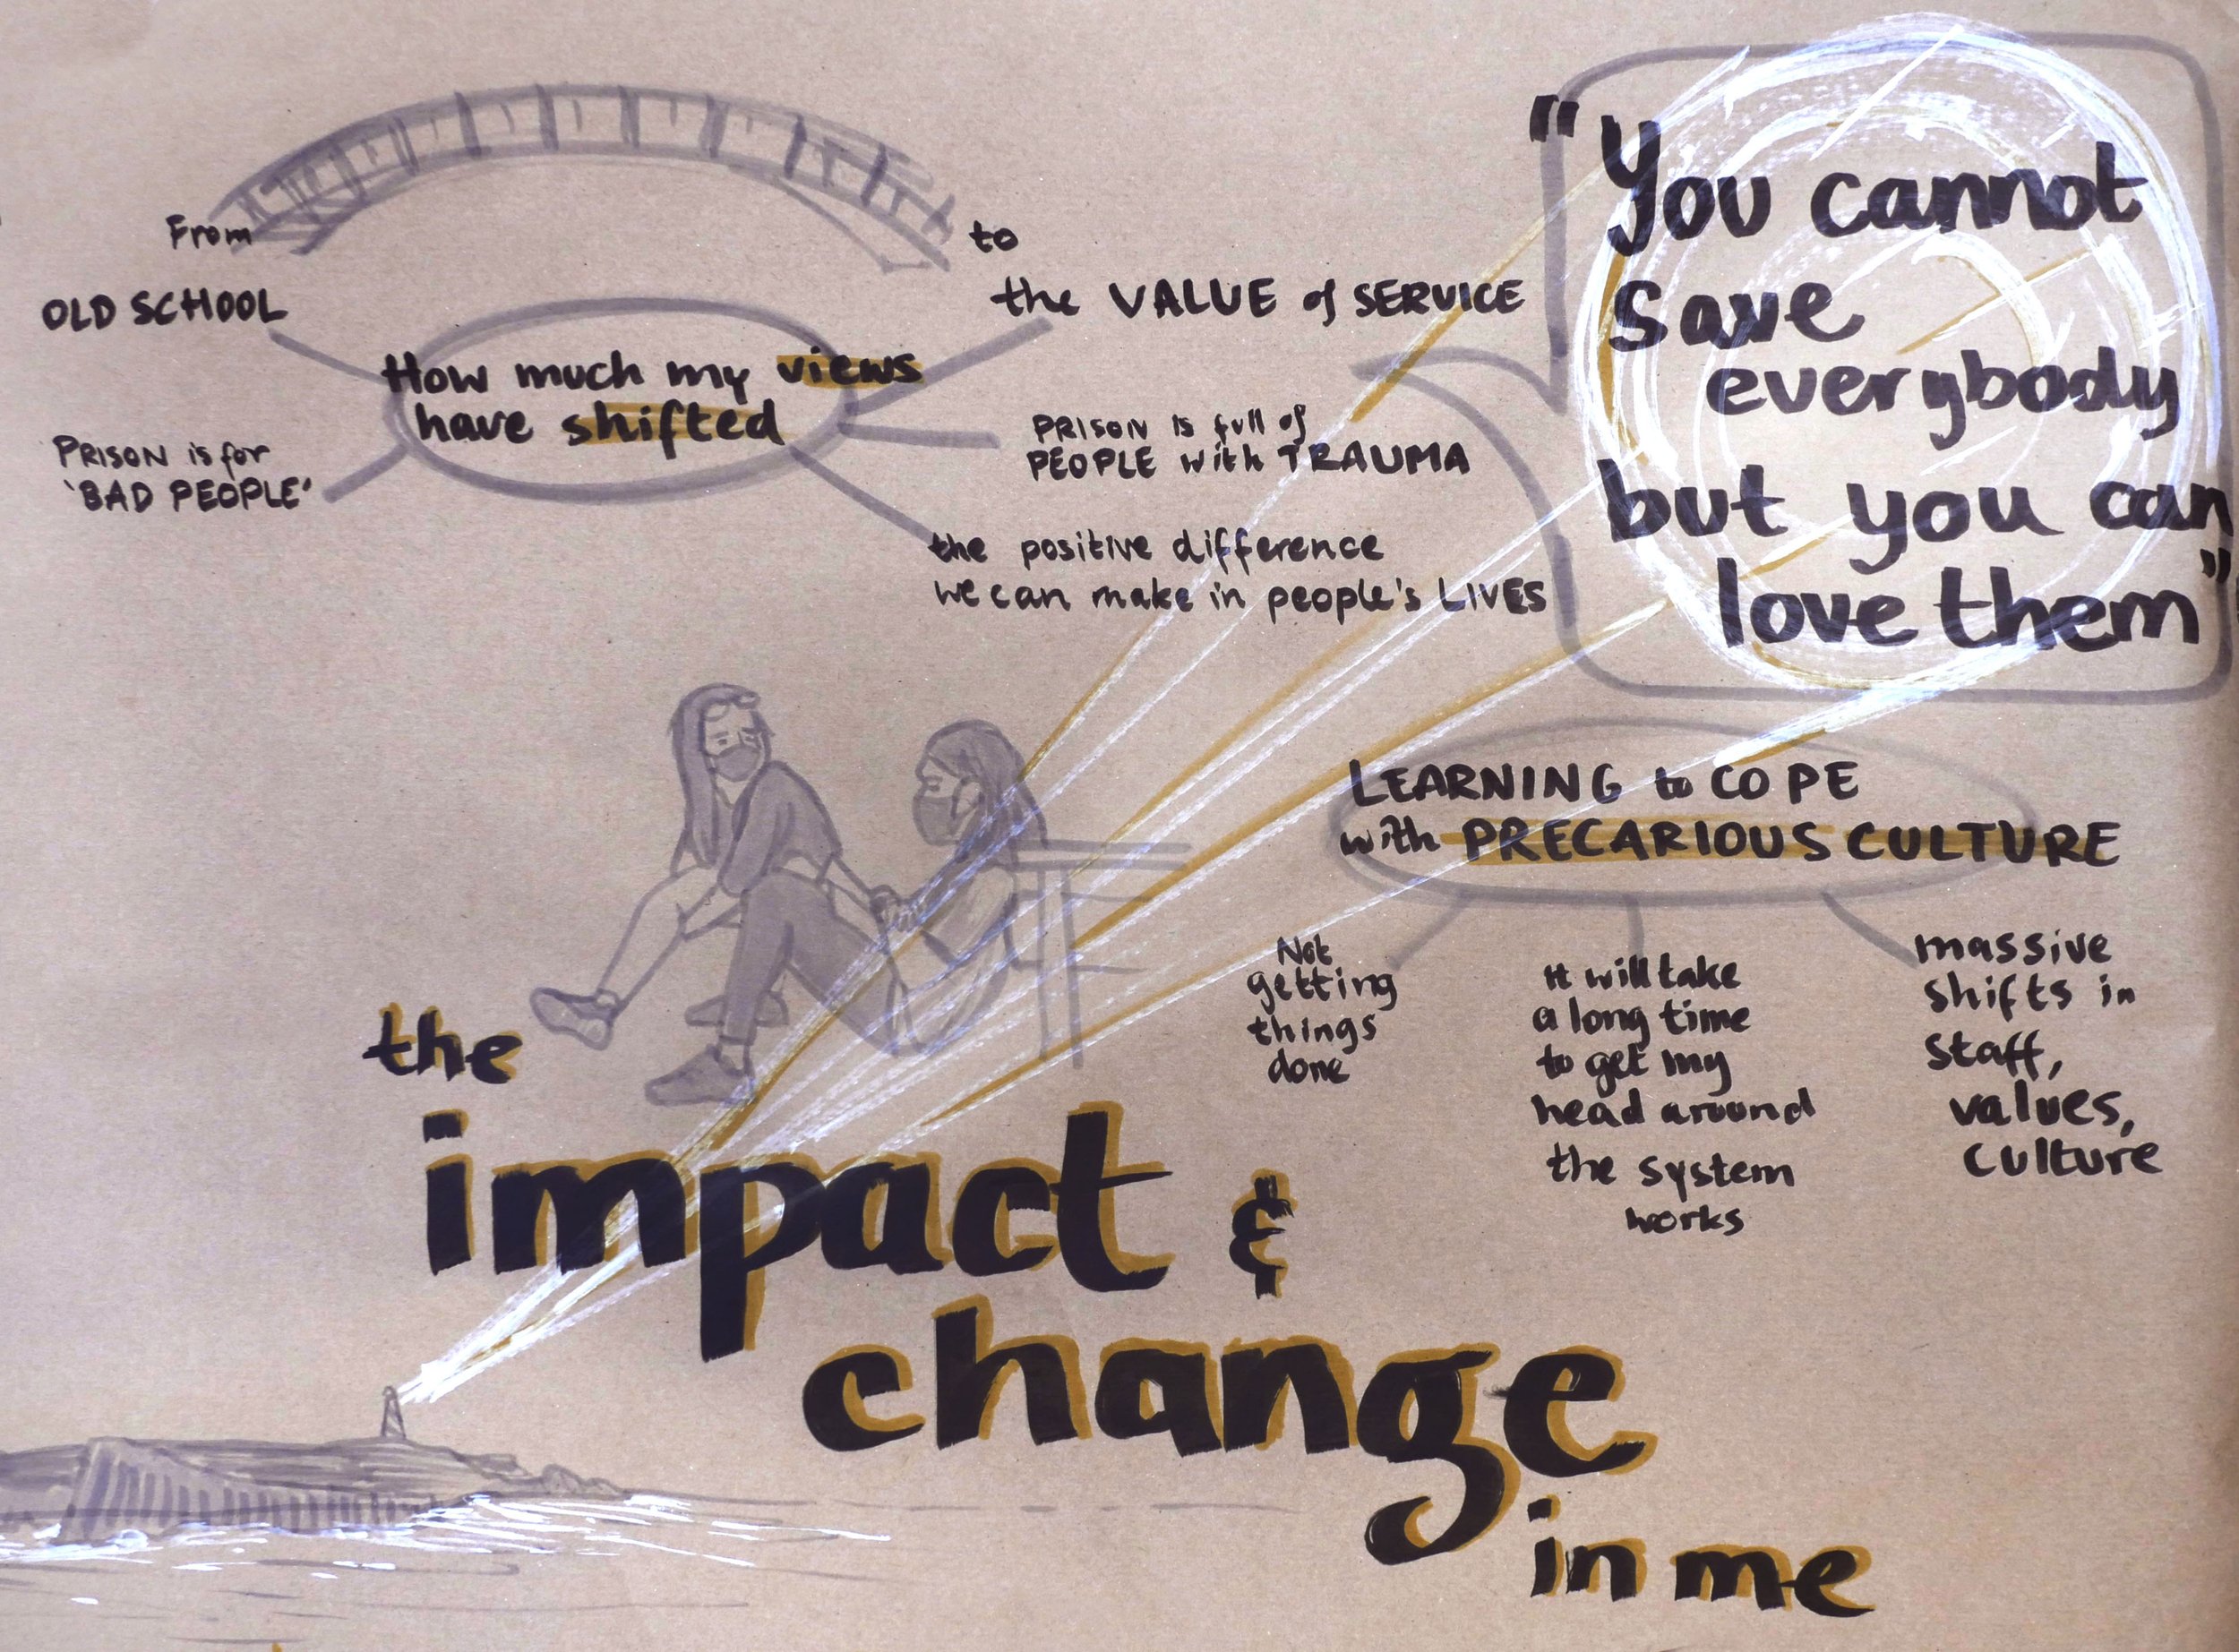 From
to
OLD SCHOOL
the VALUE of SERVICE
How much my views
have shifted
PRISON is for
'BAD PEOPLE'
PRISON is full of
PEOPLE with TRAUMA
the positive difference
we can make in people's LIVES
"You cannot
save
everybody
but you can
love them"
LEARNING to COPE
with PRECARIOUS CULTURE
Not
getting
things
done
It will take
a long time
to get my
head around
the system
works
massive
shifts in
staff,
values,
culture
the
impact &
change
in me